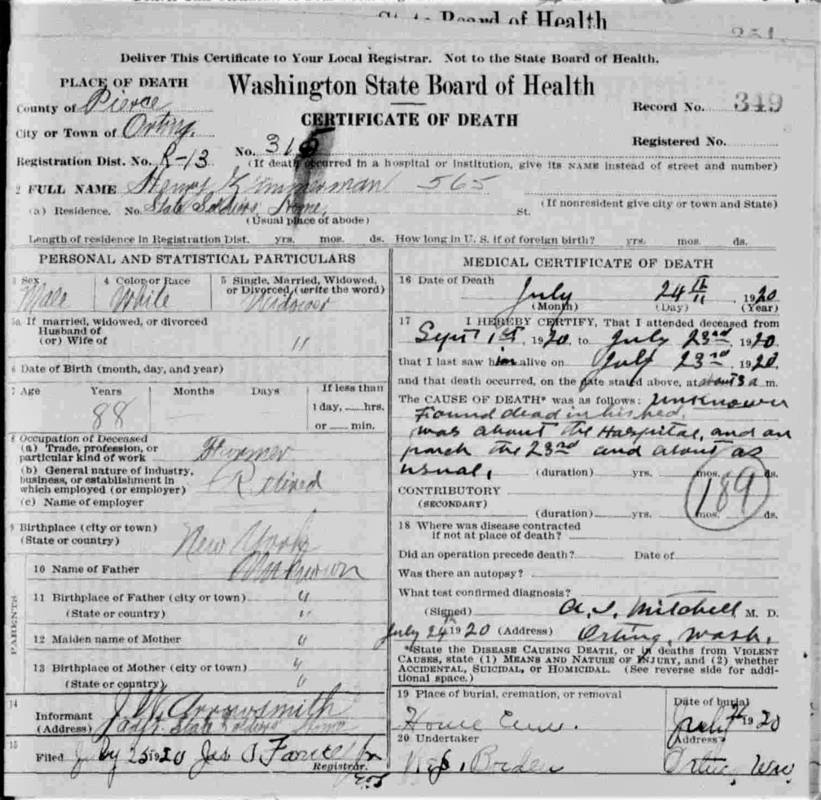 State Board of Health
351
Deliver This Certificate to Your Local Registrar. Not to the State Board of Health.
PLACE OF DEATH
Washington State Board of Health
County of Pierce
Record No. 349
City or Town of Orting
CERTIFICATE OF DEATH
Registered No.
Registration Dist. No. R-13 No. 315
(If death occurred in a hospital or institution, give its NAME instead of street and number)
2 FULL NAME Henry Zimmerman 565
(a) Residence. No. State Soldiers Home, St. (If nonresident give city or town and State)
(Usual place of abode)
Length of residence in Registration Dist. yrs. mos. ds. How long in U. S. if of foreign birth? yrs. mos. ds.
PERSONAL AND STATISTICAL PARTICULARS
3 Sex 4 Color or Race 5 Single, Married, Widowed, or Divorced, (write the word)
Male White Widower
5a If married, widowed, or divorced
Husband of
(or) Wife of "
6 Date of Birth (month, day, and year)
7 Age Years Months Days If less than
88 — 1 day, hrs.
or min.
8 Occupation of Deceased
(a) Trade, profession, or
particular kind of work Farmer
(b) General nature of industry,
business, or establishment in
which employed (or employer) Retired
(c) Name of employer
9 Birthplace (city or town)
(State or country) New York
PARENTS
10 Name of Father Unknown
11 Birthplace of Father (city or town) "
(State or country) "
12 Maiden name of Mother "
13 Birthplace of Mother (city or town) "
(State or country) "
14
Informant J. W. Arrowsmith
(Address) State Soldiers Home
15
Filed July 25 1920 Jas
Registrar.
MEDICAL CERTIFICATE OF DEATH
16 Date of Death July 24 1920
(Month) (Day) (Year)
17 I HEREBY CERTIFY, That I attended deceased from
Sept 1st, 1920 to July 23rd, 1920
that I last saw him alive on July 23rd, 1920.
and that death occurred, on the date stated above, at about 3 a m.
The CAUSE OF DEATH* was as follows: Unknown
Found dead in his bed.
was about the Hospital, and on
porch the 23rd and about as
usual, (duration) yrs. mos. ds.
CONTRIBUTORY
(SECONDARY)
189
(duration) yrs. mos. ds.
18 Where was disease contracted
if not at place of death?
Did an operation precede death? Date of
Was there an autopsy?
What test confirmed diagnosis?
(Signed) A. I. Mitchell M. D.
July 24 1920 (Address) Orting, Wash.
*State the DISEASE CAUSING DEATH, or in deaths from VIOLENT
CAUSES, state (1) MEANS AND NATURE OF INJURY, and (2) whether
ACCIDENTAL, SUICIDAL, or HOMICIDAL. (See reverse side for addi-
tional space.)
19 Place of burial, cremation, or removal Date of burial
Home Cem. July 1920
20 Undertaker Address
Borden Orting, Wn